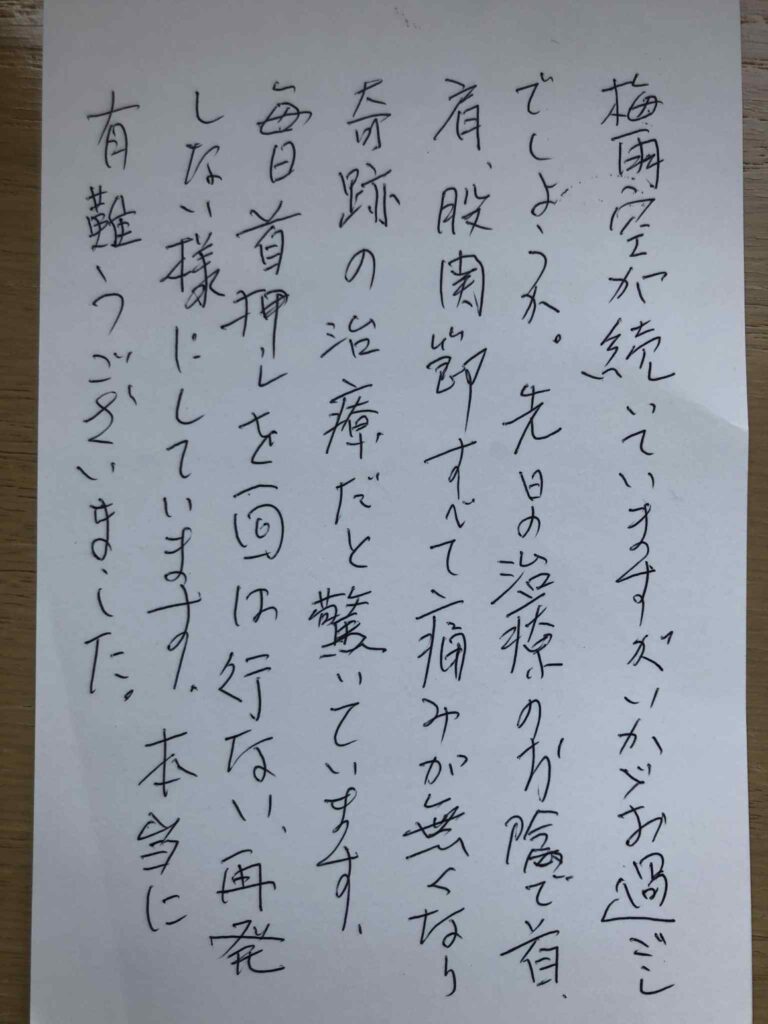 梅雨空が続いていますがいかがお過ごし
でしようか。先日の治療のお陰で首、
肩、股関節すべて痛みが無くなり
奇跡の治療だと驚いています。
毎日首押しを一回は行ない、再発
しない様にしています。本当に
有難うございました。